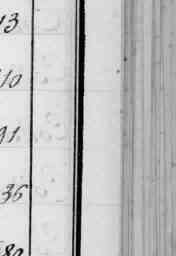 13
10
91
36
80